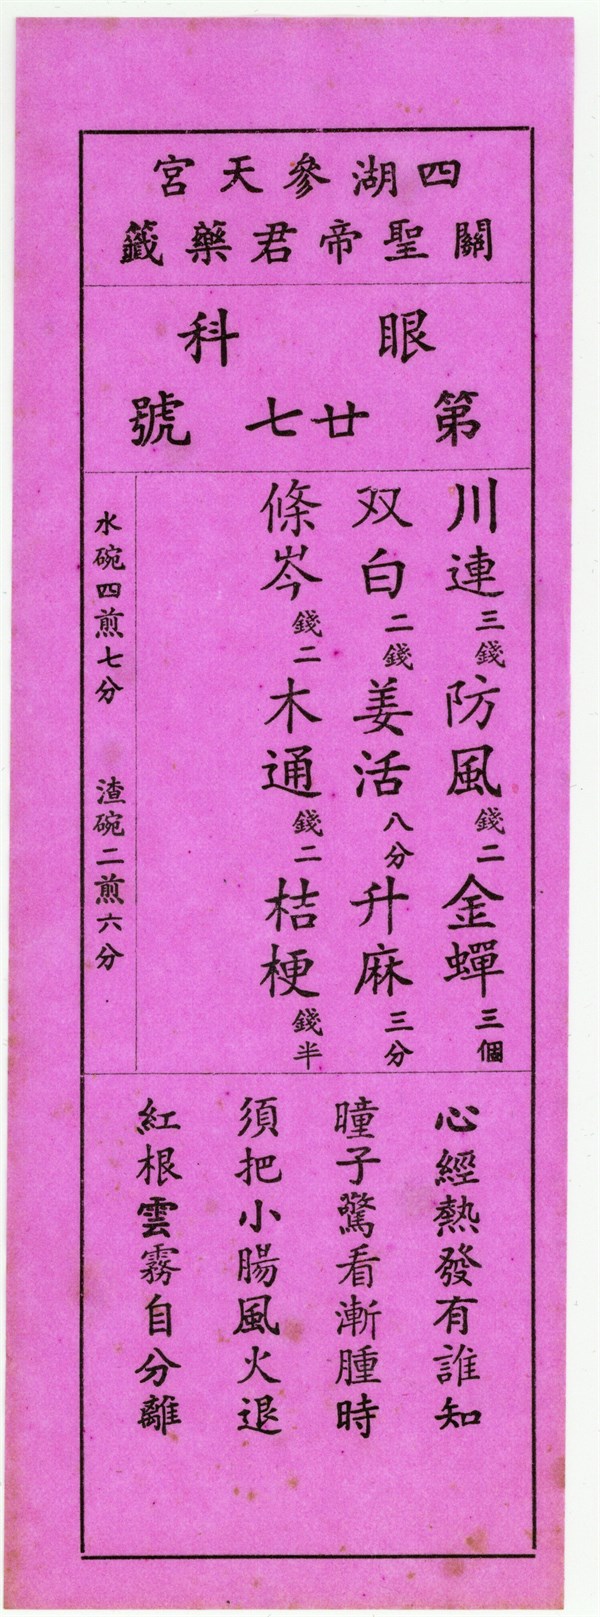 四湖參天宮
關聖帝君藥籤
眼科
第廿七號
川連三錢防風錢二金蟬三個
双白二錢姜活八分升麻三分
條岑錢二木通錢二桔梗錢半
水碗四煎七分 渣碗二煎六分
心經熱發有誰知
瞳子驚看漸腫時
須把小腸風火退
紅根雲霧自分離